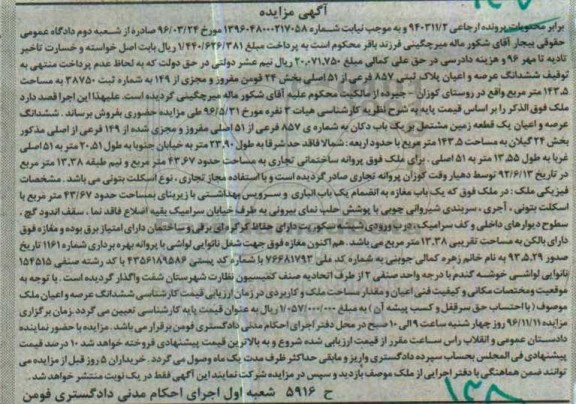 آگهی مزایده
برابر محتویات پرونده ارجاعی ۹۴۰۳۱۱/۲ و به موجب نیابت شماره ۱۳۹۶۰۴۸۰۰۰۲۱۷۰۵۸ مورخ ۹۶/۰۳/۲۴ صادره از شعبه دوم دادگاه عمومی
حقوقی بیجار آقای شکور ماله میرچگینی فرزند باقر محکوم است به پرداخت مبلغ ۱/۴۴۰/۶۲۶/۳۸۱ ریال بابت اصل خواسته و خسارت تاخیر
تادیه تا مهر ۹۶ و هزینه دادرسی در حق علی کمالی مبلغ ۲۰.۰۷۱.۷۵۰ ریال نیم عشر دولتی در حق دولت که به لحاظ عدم پرداخت منتهی به
توقیف ششدانگ عرصه و اعیان پلاک ثبتی ۸۵۷ فرعی از ۵۱ اصلی بخش ۲۴ فومن مفروز و مجزی از ۱۴۹ به شماره ثبت ۳۸۷۵۰ به مساحت
۱۴۳.۵ متر مربع واقع در روستای کوزان - جیرده از مالکیت محکوم علیه آقای شکور ماله میرچگینی گردیده است. علیهذا این اجرا قصد دارد
ملک فوق الذکر را بر اساس قیمت پایه به شرح نظریه کارشناسی هیات ۳ نفره مورخ ۹۶/۵/۳۱ طی مزایده حضوری بفروش برساند. ششدانگ
عرصه و اعیان یک قطعه زمین مشتمل بر یک باب دکان به شماره ی ۸۵۷ فرعی از ۵۱ اصلی مفروز و مجزی شده از ۱۴۹ فرعی از اصلی مذکور
بخش ۲۴ گیلان به مساحت ۱۴۳.۵ متر مربع با حدود اربعه: شمالا فاقد حد شرقا به طول ۲۳.۹۰ متر به خیابان جنوبا به طول ۲۰.۵۱ متر به ۵۱ اصلی
غربا به طول ۱۳.۵۵ متر به ۵۱ اصلی. برای ملک فوق پروانه ساختمانی تجاری به مساحت حدود ۴۳.۶۷ متر مربع و نیم طبقه ۱۳.۳۸ متر مربع
در تاریخ ۹۲/۶/۱۳ توسط دهیار وقت کوزان پروانه تجاری صادر گردیده است و با استفاده مجاز تجاری، نوع اسکلت بتونی می باشد. مشخصات
فیزیکی ملک: در ملک فوق که یک باب مغازه به انضمام یک باب انباری و سرویس بهداشتی با زیربنای بمساحت حدود ۴۳/۶۷ متر مربع با
اسکلت بتونی، آجری، سربندی شیروانی چوبی با پوشش حلب نمای بیرونی به طرف خیابان سرامیک بقیه اضلاع فاقد نما، سقف اندود گچ،
سطوح دیوارهای داخلی و کف سرامیک، درب ورودی شیشه سکوریت دارای حفاظ کرکره ای برقی و ساختمان دارای امتیاز برق بوده و مغازه فوق
دارای بالکن به مساحت تقریبی ۱۳.۳۸ متر مربع می باشد. هم اکنون مغازه فوق جهت شغل نانوایی لواشی با پروانه بهره برداری شماره ۱۱۶۱ تاریخ
صدور ۹۳.۵.۲۹ به نام خانم زهره کمالی جوبنی به شماره کد ملی ۷۶۶۸۱۷۹۳ با شماره کد پستی ۴۳۵۶۱۸۹۵۸۶ با کد رشته صنفی ۱۵۴۵۱۵
نانوایی لواشی خوشه گندم با درجه واحد صنفی ۳ از طرف اتحادیه صنف کمیسیون نظارت شهرستان شفت واگذار گردیده است. با توجه به
موقعیت و مختصات مکانی و کیفیت فنی اعیان و مقدار مساحت ملک و کاربردی در زمان ارزیابی قیمت کارشناسی ششدانگ عرصه و اعیان ملک
موصوف (با احتساب حق سرقفل و کسب پیشه آن) به مبلغ ۱/۰۵۷/۰۰۰/۰۰۰ ریال به عنوان قیمت پایه کارشناسی تعیین می گردد. زمان برگزاری
مزایده ۹۶/۱۱/۱۱ روز چهار شنبه ساعت ۹ الی ۱۰ صبح در محل دفتر اجرای احکام مدنی دادگستری فومن برقرار می باشد. مزایده با حضور نماینده
دادستان عمومی و انقلاب راس ساعت مقرر از قیمت ارزیابی شده شروع و به بالاترین قیمت پیشنهادی فروخته خواهد شد ۱۰ درصد قیمت
پیشنهادی فی المجلس بحساب سپرده دادگستری واریز و مابقی حداکثر ظرف مدت یک ماه وصول می گردد. خریداران ۵ روز قبل از مزایده می
توانند ضمن هماهنگی با دفتر اجرایی از ملک موصف بازدید و سپس در مزایده شرکت نمایند این آگهی فقط در یک نوبت منتشر خواهد شد.
ح ۵۹۱۶ شعبه اول اجرای احکام مدنی دادگستری فومن